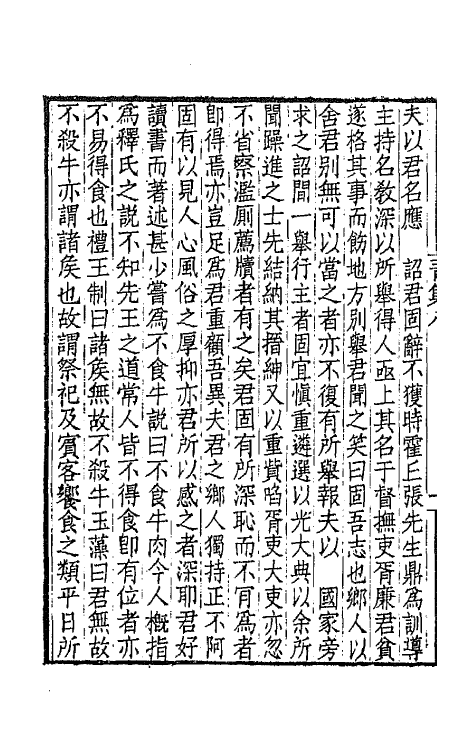 夫以君名應　詔君固辭不獲時霍丘張先生鼎為訓導
主持名教深以所舉得人亟上其名于督撫吏胥廉君貧
遂格其事而飭地方別舉君聞之笑曰固吾志也鄉人以
舍君別無可以當之者亦不復有所舉報夫以　國家旁
求之詔間一舉行主者固宜愼重遴選以光大典以余所
聞躁進之士先結納其搢紳又以重貲啗胥吏大吏亦忽
不省察濫厠薦牘者有之矣君固有所深恥而不肎為者
卽得焉亦豈足為君重顧吾異夫君之鄉人獨持正不阿
固有以見人心風俗之厚抑亦君所以感之者深耶君好
讀書而著述甚少嘗為不食牛說曰不食牛肉今人槪指
為釋氏之說不知先王之道常人皆不得食卽有位者亦
不易得食也禮王制曰諸矦無故不殺牛玉藻曰君無故
不殺牛亦謂諸矦也故謂祭祀及賓客饗食之類平日所